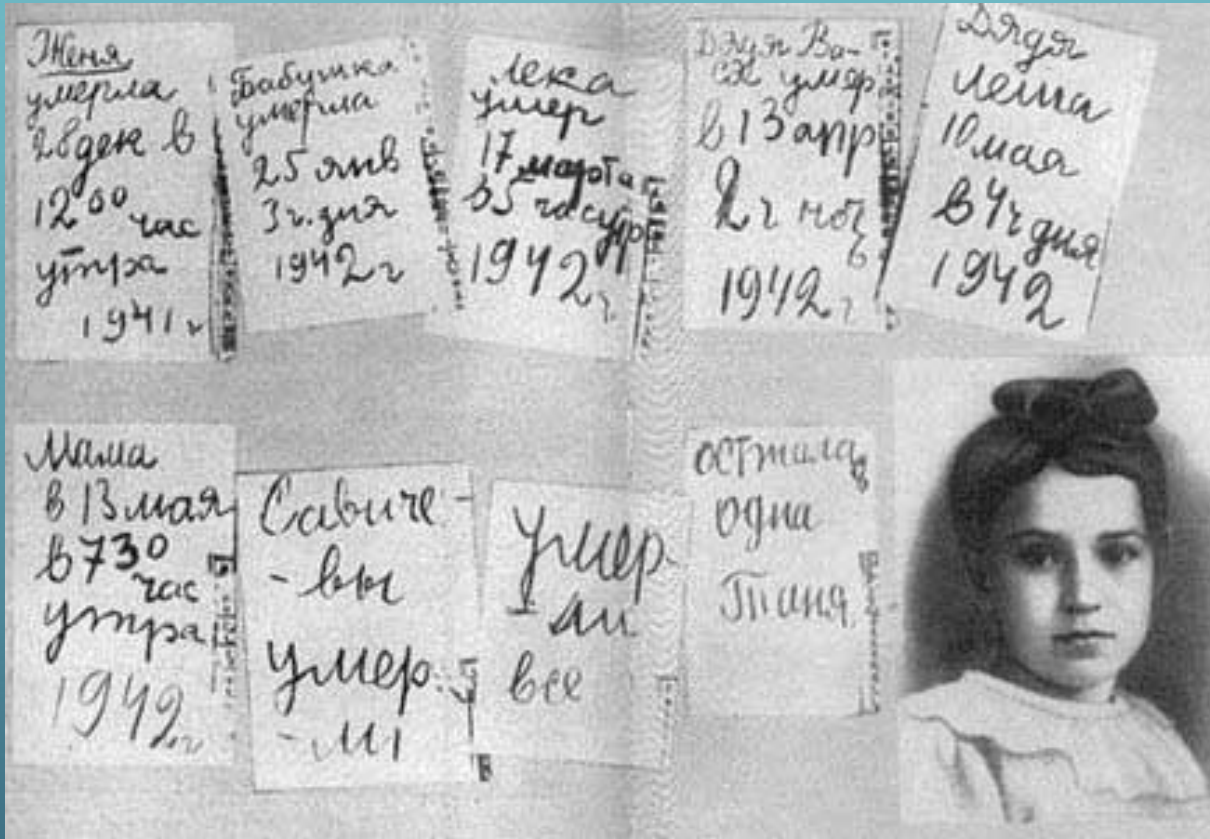 Женя
умерла
28 дек в
12 00 час
утра
1941 г
Бабушка
умерла
25 янв
3 ч. дня
1942 г
Лека
умер
17 марта
в 5 час утр
1942 г.
Дядя Ва-
ся умер
в 13 апр
2 ч ноч
ь
1942 г
Дядя
Леша
10 мая
в 4 ч дня
1942
Мама
в 13 мая
в 7 30
час
утра
1942 г
Савиче-
-вы
умер.
-ли
Умер-
-ли
все
осталась
одна
Таня